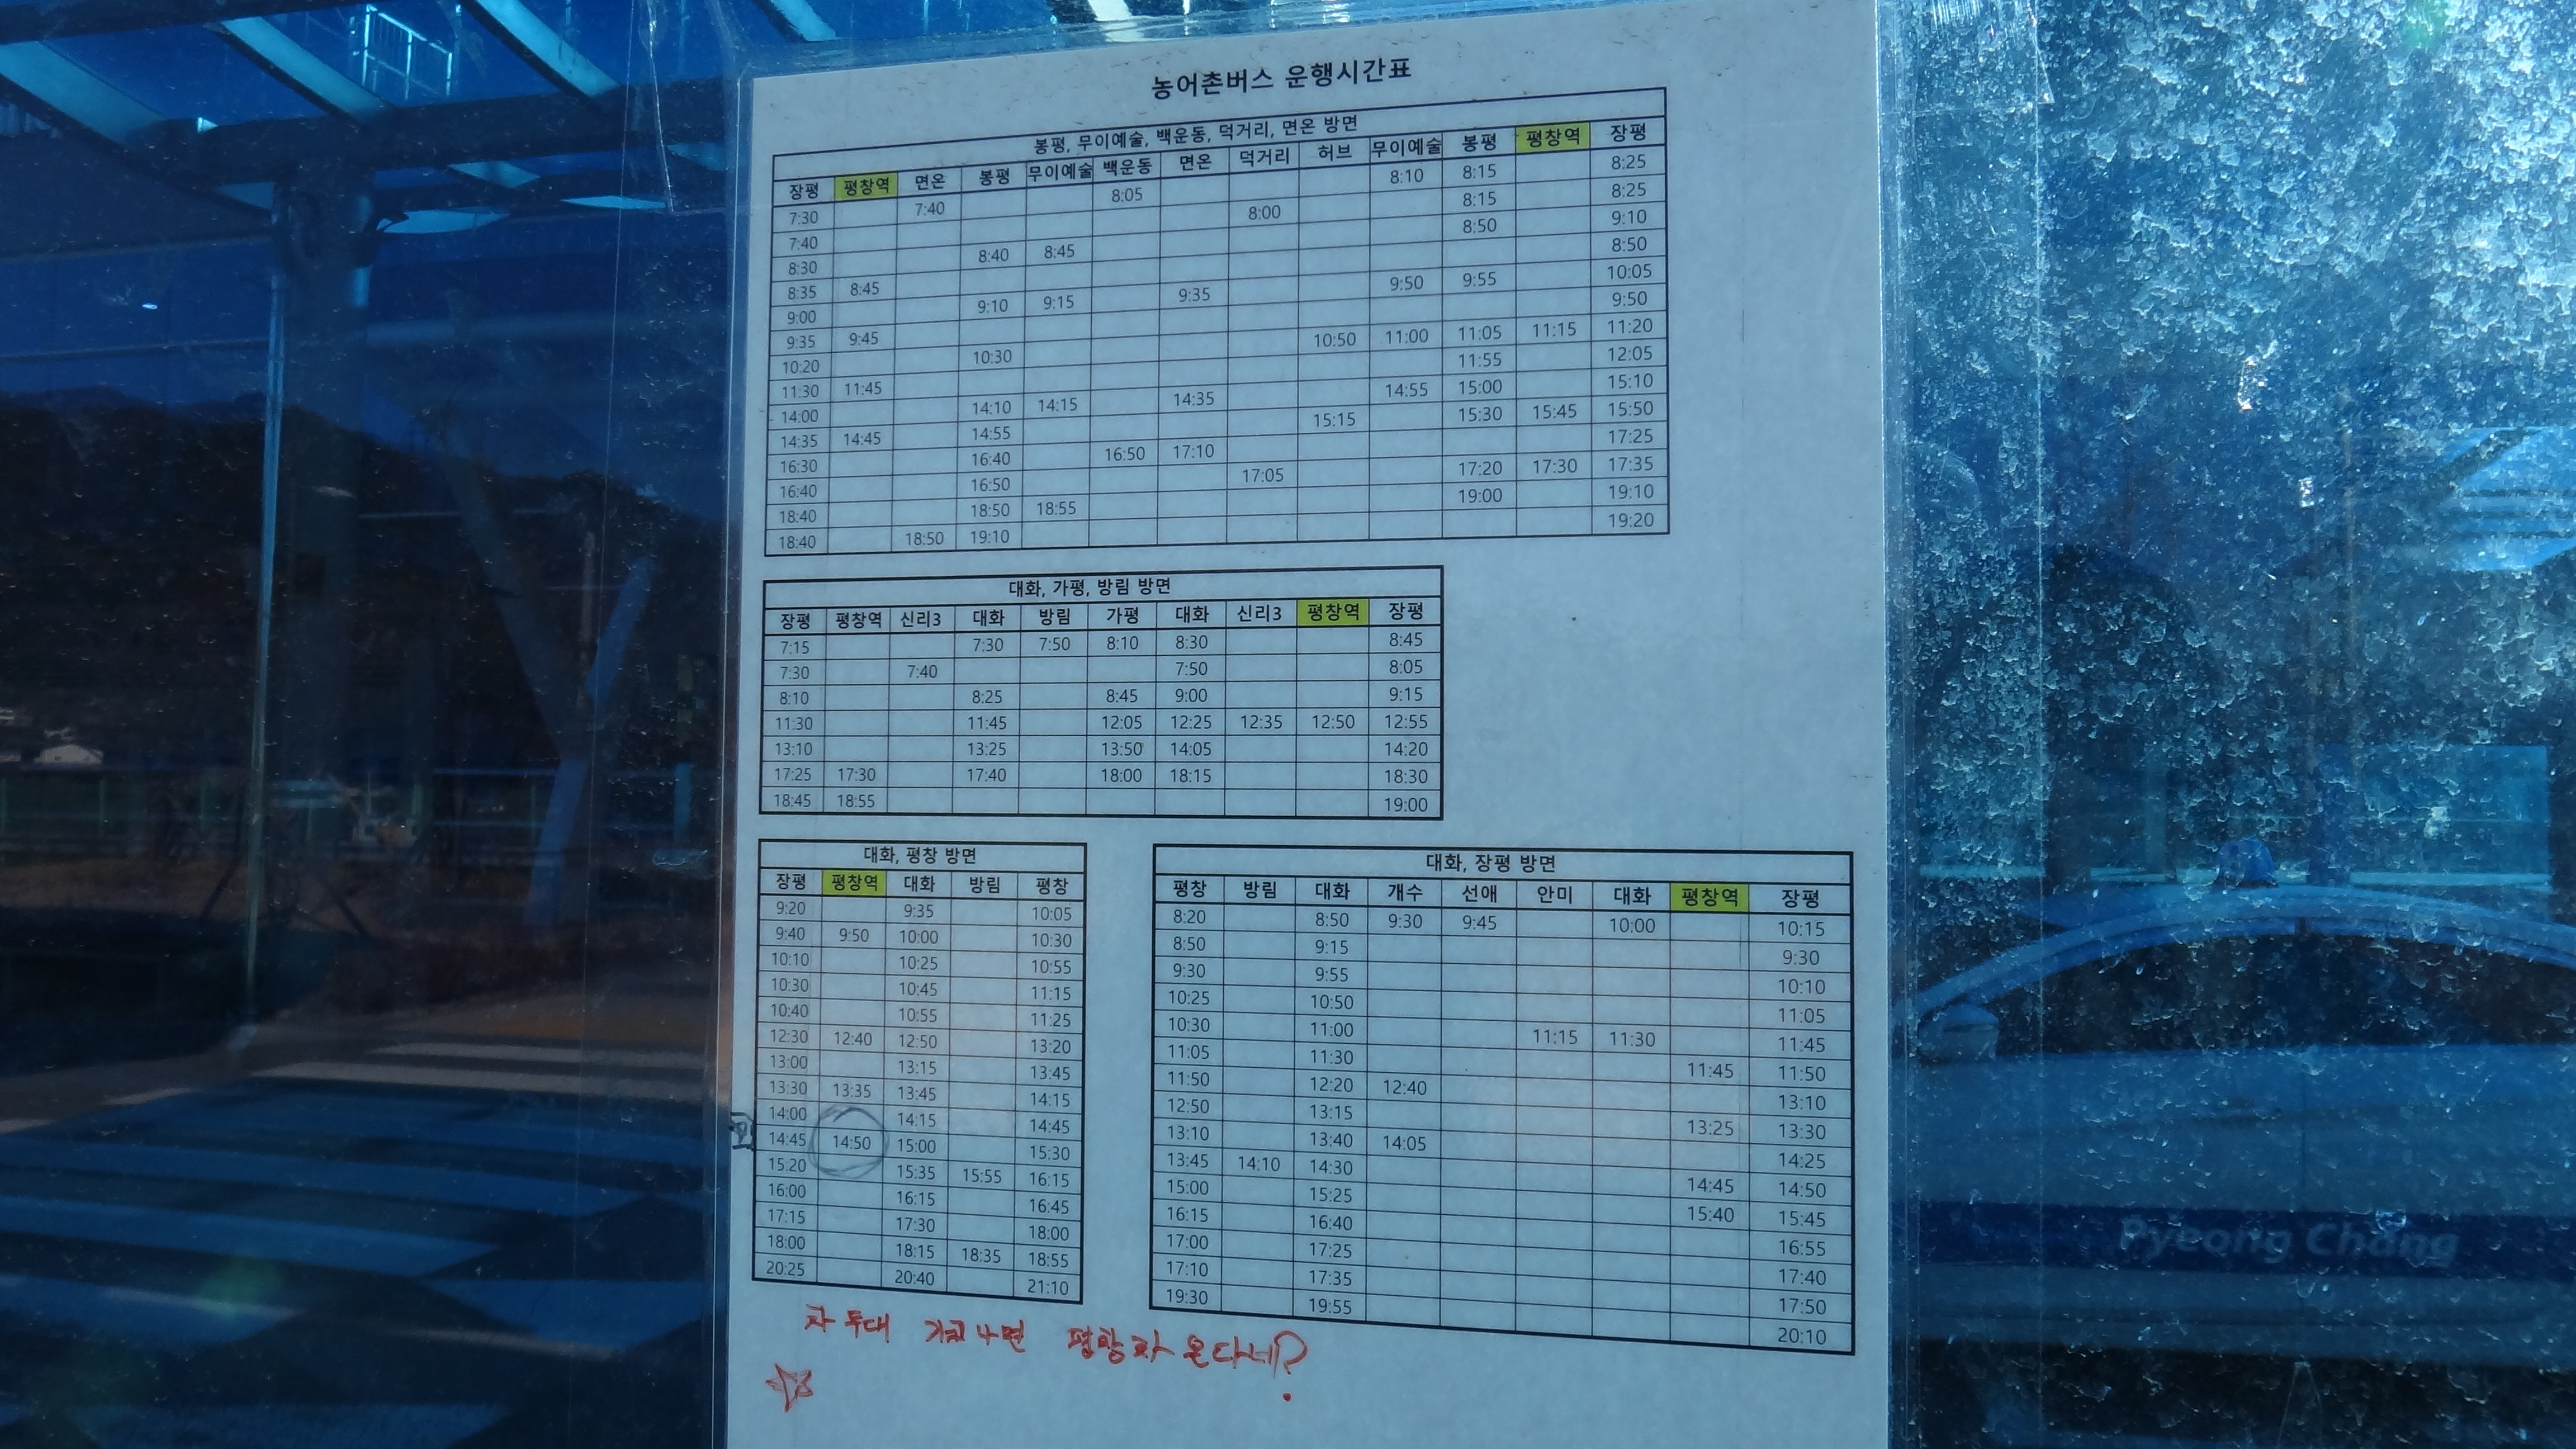 농어촌버스 운행시간표
봉평, 무이예술, 백운동, 덕거리, 면온 방면
장평 평창역 면온 봉평 무이예술 백운동 면온 덕거리 허브 무이예술 봉평 평창역 장평
7:30 7:40 8:05 8:10 8:15 8:25
7:40 8:00 8:15 8:25
8:30 8:40 8:45 8:50 9:10
8:35 8:45 8:50
9:00 9:10 9:15 9:35 9:50 9:55 10:05
9:35 9:45 9:50
10:20 10:30 10:50 11:00 11:05 11:15 11:20
11:30 11:45 11:55 12:05
14:00 14:10 14:15 14:35 14:55 15:00 15:10
14:35 14:45 14:55 15:15 15:30 15:45 15:50
16:30 16:40 16:50 17:10 17:25
16:40 16:50 17:05 17:20 17:30 17:35
18:40 18:50 18:55 19:00 19:10
18:40 18:50 19:10 19:20
대화, 가평, 방림 방면
장평 평창역 신리3 대화 방림 가평 대화 신리3 평창역 장평
7:15 7:30 7:50 8:10 8:30 8:45
7:30 7:40 7:50 8:05
8:10 8:25 8:45 9:00 9:15
11:30 11:45 12:05 12:25 12:35 12:50 12:55
13:10 13:25 13:50 14:05 14:20
17:25 17:30 17:40 18:00 18:15 18:30
18:45 18:55 19:00
대화, 평창 방면
장평 평창역 대화 방림 평창
9:20 9:35 10:05
9:40 9:50 10:00 10:30
10:10 10:25 10:55
10:30 10:45 11:15
10:40 10:55 11:25
12:30 12:40 12:50 13:20
13:00 13:15 13:45
13:30 13:35 13:45 14:15
14:00 14:15 14:45
14:45 14:50 15:00 15:30
15:20 15:35 15:55 16:15
16:00 16:15 16:45
17:15 17:30 18:00
18:00 18:15 18:35 18:55
20:25 20:40 21:10
대화, 장평 방면
평창 방림 대화 개수 선애 안미 대화 평창역 장평
8:20 8:50 9:30 9:45 10:00 10:15
8:50 9:15 9:30
9:30 9:55 10:10
10:25 10:50 11:05
10:30 11:00 11:15 11:30 11:45
11:05 11:30 11:45 11:50
11:50 12:20 12:40 13:10
12:50 13:15 13:25 13:30
13:10 13:40 14:05 14:25
13:45 14:10 14:30 14:45 14:50
15:00 15:25 15:40 15:45
16:15 16:40 16:55
17:00 17:25 17:40
17:10 17:35 17:50
19:30 19:55 20:10
차 두대 가고나면 평창차 온다네?
Pyeong Chang